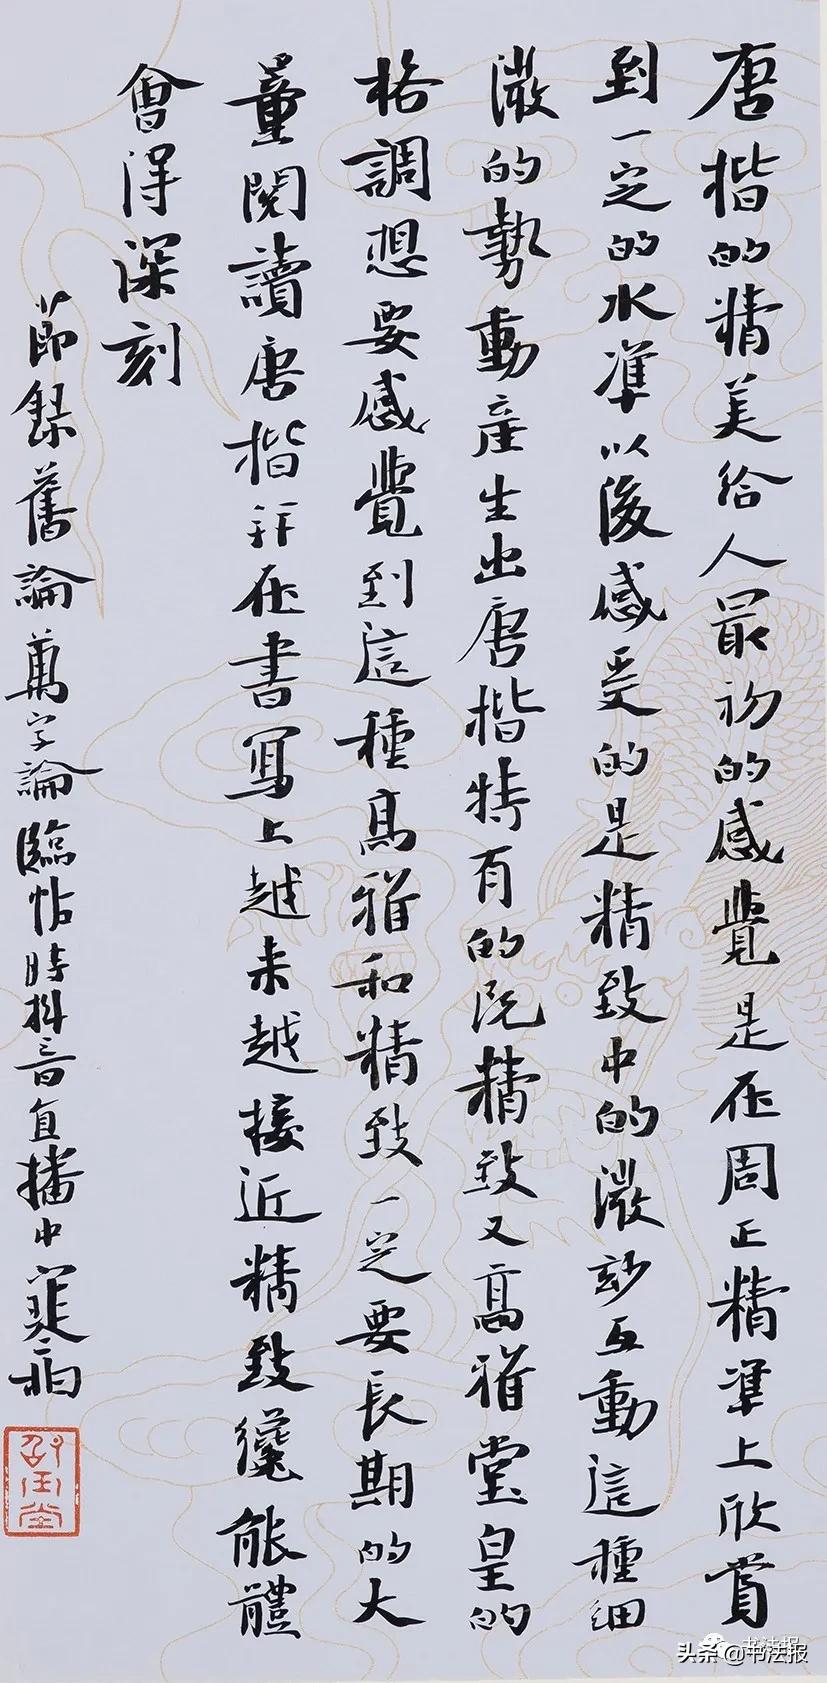 唐楷的精美給人最初的感覺是在周正精準上欣賞
到一定的水準以後感受的是精致中的微妙互動這種細
微的勢動產生出唐楷特有的既精致又高雅堂皇的
格調想要感覺到這種高雅和精致一定要長期的大
量閱讀唐楷並在書寫上越來越接近精致纔能體
會得深刻
節錄舊論萬字論臨帖時抖音直播中
头条@书法报
书法报